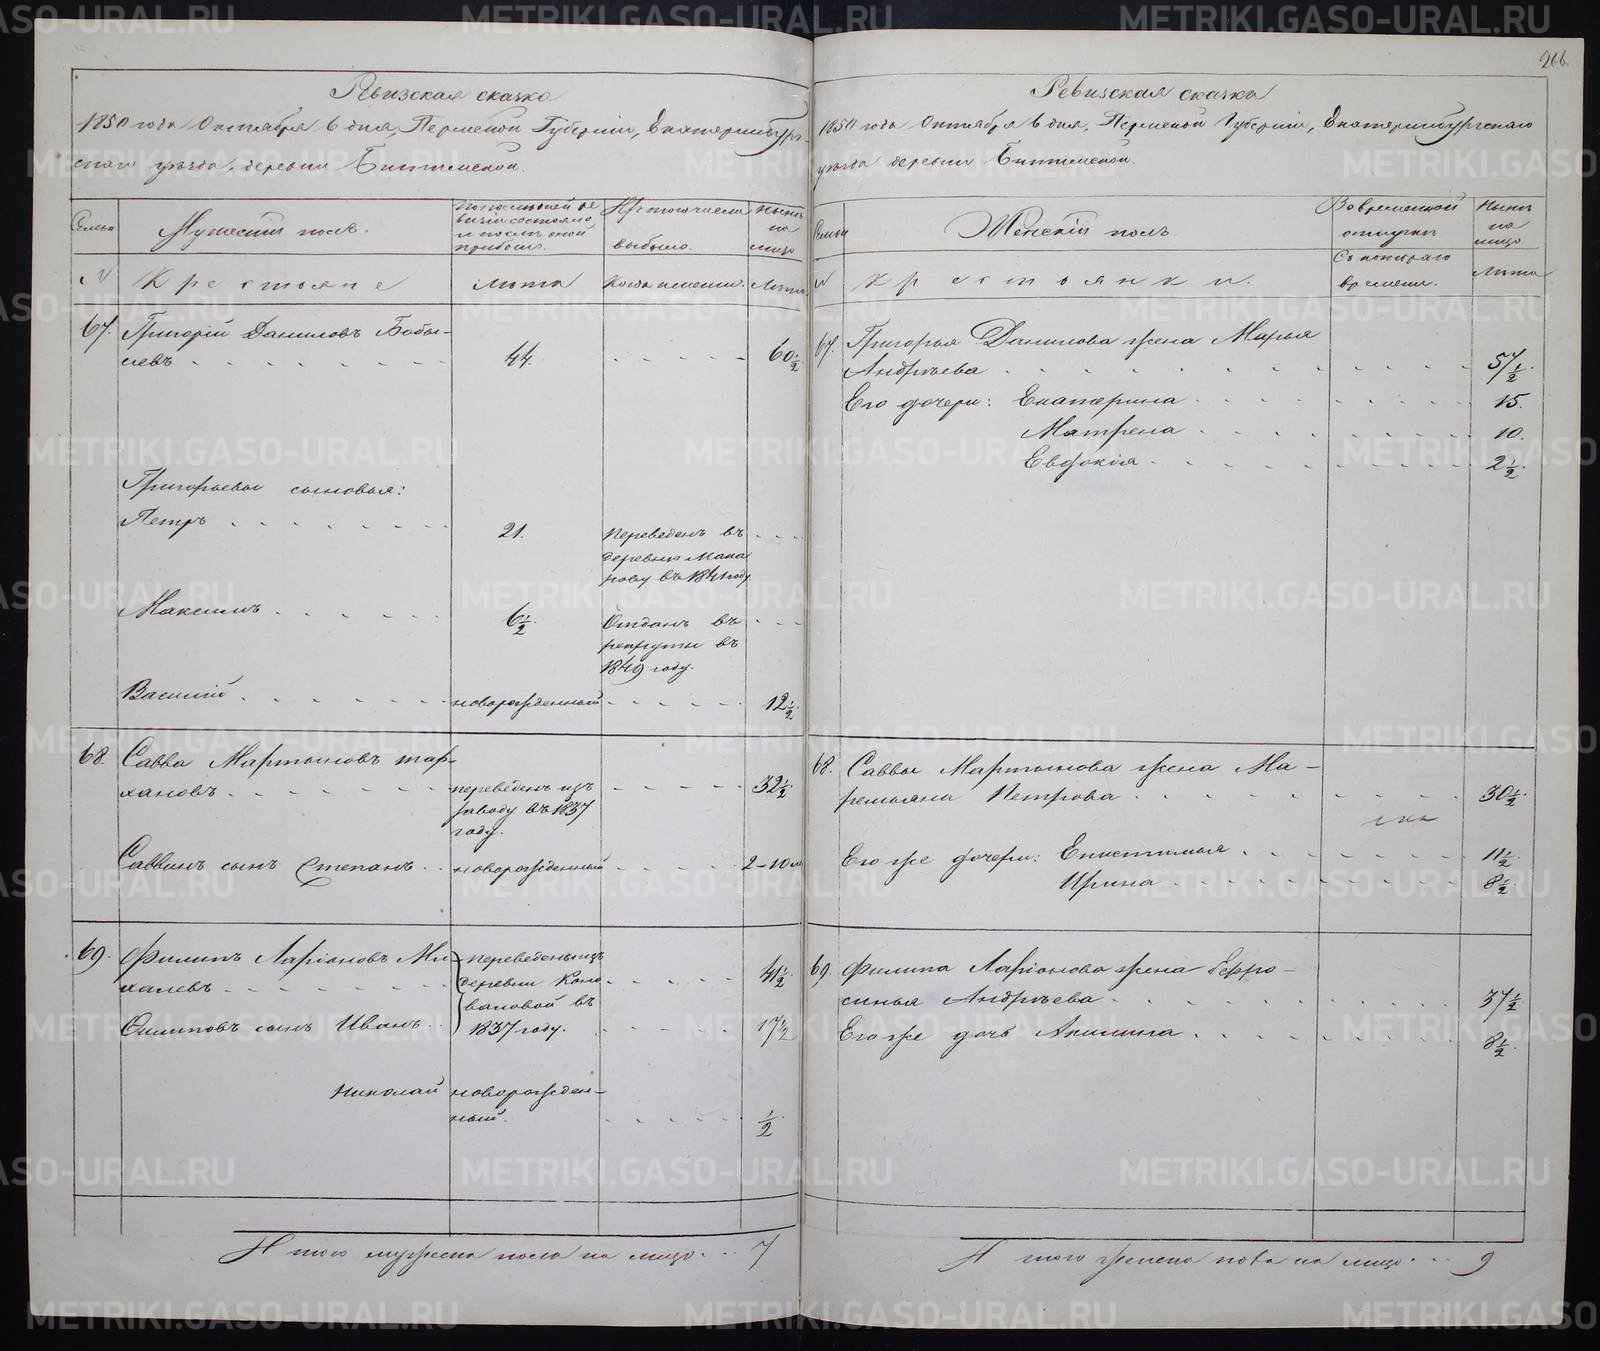 266.
Ревизская сказка
1850 года Октября 6 дня, Пермской Губерніи, Екатеринбург-
скаго уѣзда, деревни Битимской.
Семьи
Мужескій полъ.
По послѣдней ре
визіи состояло
и послѣ оной
прибыло.
Изъ того числа
выбыло.
Нынѣ
на
лицо
N
Крестьяне
лѣта
Когда именно.
Лѣта.
67.
Григорій Даниловъ Бобы-
левъ
44.
60½
Григорьевы сыновья:
Петръ
21.
Переведенъ въ
деревню Мака
рову въ 1841 году
Максимъ
6½
Отданъ въ
рекруты въ
1849 году.
Василій
новорожденный
12½
68.
Савва Мартыновъ тар-
хановъ
переведенъ изъ
заводу въ 1837
году.
32½
Саввинъ сынъ Степанъ
новорожденный
2-10 м
69.
Филипъ Ларіоновъ Ми
халевъ
переведены изъ
деревни Коно
валовой въ
1837 году.
41½
Филиповъ сынъ Иванъ
17½
Николай
новорожден-
ный.
½
И того мужеска пола на лицо 7
Ревизская сказка
1850 года Октября 6 дня, Пермской Губерніи, Екатеринбургскаго
уѣзда деревни Битимской.
Семьи
Женскій полъ
Во временной
отлучкѣ
Нынѣ
на
лицо
N
Крестьянки.
Съ котораго
времени.
Лѣта
67.
Григорья Данилова жена Марья
Андрѣева
57½
Его дочери: Екатерина
15.
Матрена
10.
Евдокія
2½
68.
Саввы Мартынова жена Ма-
ремьяна Петрова
30½
Его же дочери: Епистимья
11½
Ирина
8½
69.
Филипа Ларіонова жена Ефро-
синья Андрѣева
37½
Его же дочь Акилина
8½
И того женска пола на лицо 9
METRIKI.GASO-URAL.RU